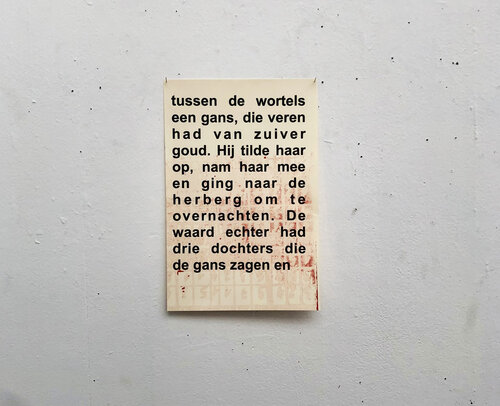 tussen de wortels
een gans, die veren
had van zuiver
goud. Hij tilde haar
op, nam haar mee
en ging naar de
herberg om te
overnachten. De
waard echter had
drie dochters die
de gans zagen en